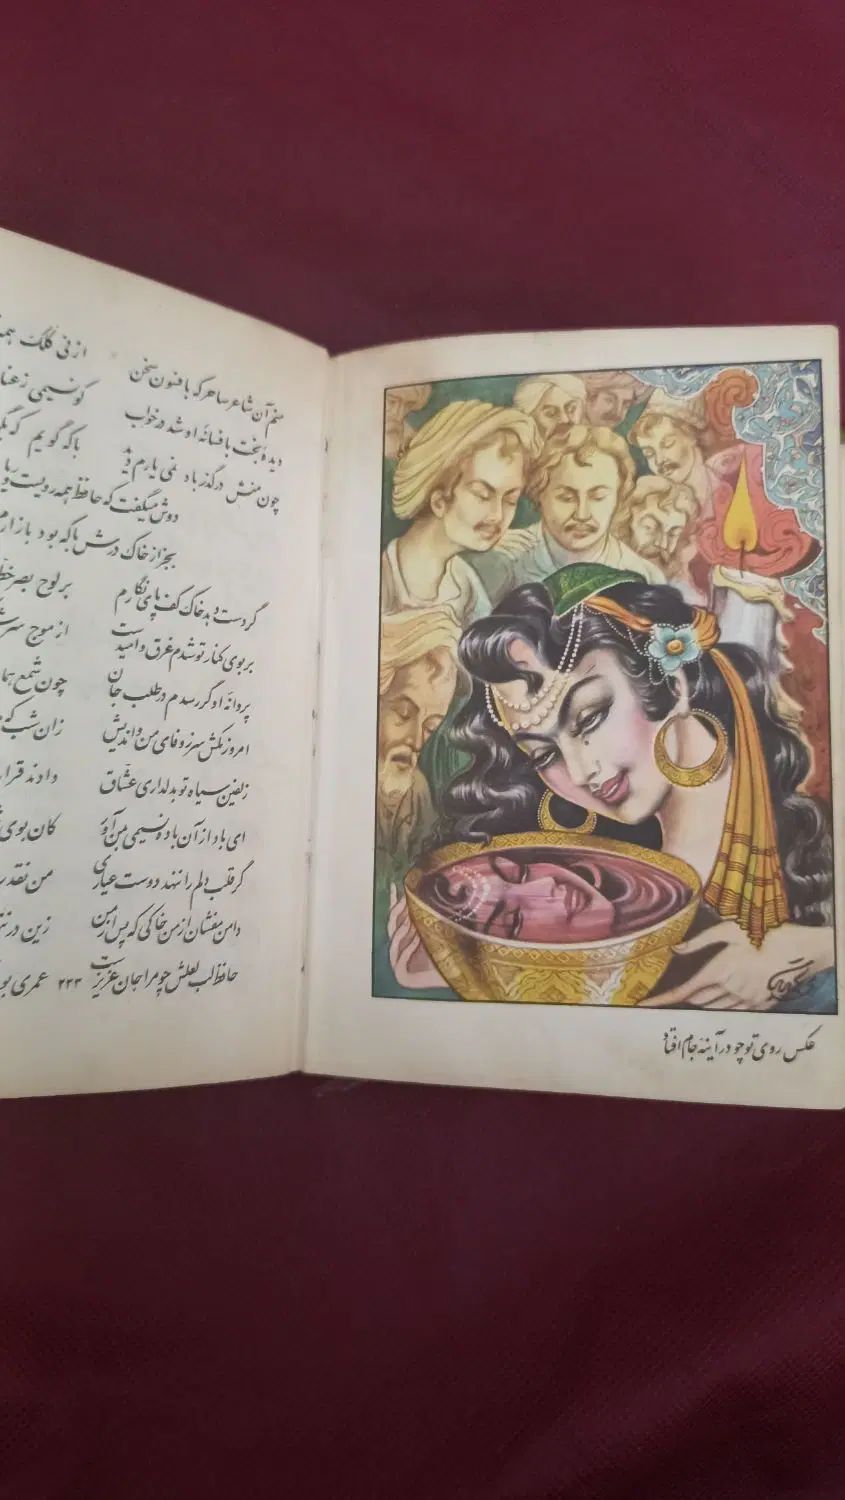 منم آن شاعر ساحر که بافسون سخن از نی کلک همه
دیدهٔ بخت بافسانهٔ او شد در خواب کو نسیمی ز عنا
چون منش در گذر باد نمی یارم دید با که گویم که بگ
دوش میگفت که حافظ همه رویست و ریا
بجز از خاک درش با که بود بازارم
گر دست دهد خاک کف پای نگارم بر لوح بصر خط
بر بوی کنار تو شدم غرق و امیدست از موج سر
پروانهٔ او گر رسدم در طلب جان چون شمع هما
امروز مکش سر ز وفای من و اندیش زان شب که
زلفین سیاه تو بدلداری عشاق دادند قرار
ای باد از آن باده نسیمی بمن آور کان بوی
گر قلب دلم را ننهد دوست عیاری من نقد
دامن مفشان از من خاکی که پس از من زین در
حافظ لب لعلش چو مرا جان عزیزست عمری بو
۲۲۳
عکس روی تو چو در آینهٔ جام افتاد